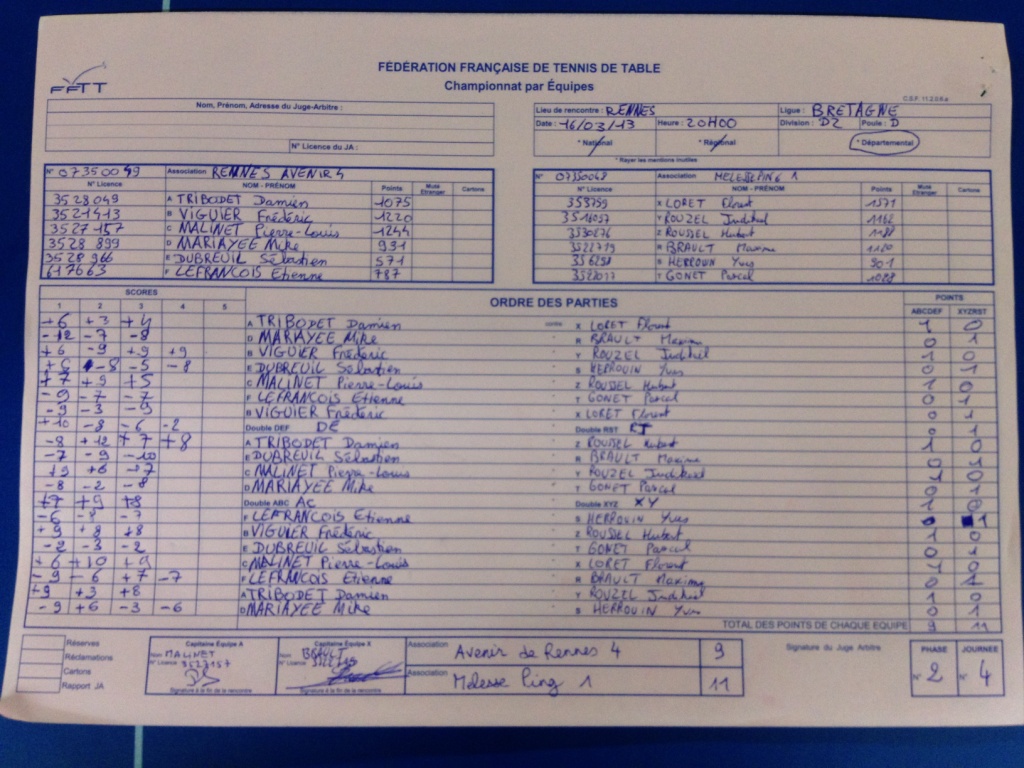 FFTT
FÉDÉRATION FRANÇAISE DE TENNIS DE TABLE
Championnat par Équipes
Nom, Prénom, Adresse du Juge-Arbitre :
N° Licence du JA :
Lieu de rencontre : RENNES Ligue : BRETAGNE
Date : 16/03/13 Heure : 20H00 Division : D2 Poule : D
* National * Régional * Départemental
* Rayer les mentions inutiles
N° 07350049 Association RENNES AVENIR 4
N° Licence NOM - PRÉNOM Points Muté Etranger Cartons
3528049 A TRIBODET Damien 1075
3521413 B VIGUIER Frédéric 1220
3527157 C MALINET Pierre-Louis 1244
3528 899 D MARIAYEE Mike 931
3528 966 E DUBREUIL Sébastien 571
617663 F LEFRANCOIS Etienne 787
N° Association MELESSE PING 1
N° Licence NOM - PRÉNOM Points Muté Etranger Cartons
X LORET Florent 1371
Y ROUZEL Judikel 1162
Z ROUSSEL Hubert
R BRAULT Maxime
S HERROUIN Yves 901
T GONET Pascal 1088
SCORES ORDRE DES PARTIES POINTS
1 2 3 4 5 ABCDEF XYZRST
+6 +3 +4 A TRIBODET Damien contre X LORET Florent 1 0
-12 -7 -8 D MARIAYEE Mike " R BRAULT Maxime 0 1
+6 -9 +9 +9 B VIGUIER Frédéric " Y ROUZEL Judikel 1 0
+6 -8 -5 -8 E DUBREUIL Sébastien " S HERROUIN Yves 0 1
+7 +9 +5 C MALINET Pierre-Louis " Z ROUSSEL Hubert 1 0
-9 -7 -7 F LEFRANCOIS Etienne " T GONET Pascal 0 1
-9 -3 -9 B VIGUIER Frédéric " X LORET Florent 0 1
+10 -8 -6 -2 Double DEF DE " Double RST RT 0 1
-8 +12 +7 +8 A TRIBODET Damien " Z ROUSSEL Hubert 1 0
-7 -9 -10 E DUBREUIL Sébastien " R BRAULT Maxime 0 1
+9 +6 +7 C MALINET Pierre-Louis " Y ROUZEL Judikel 1 0
-8 -2 -8 D MARIAYEE Mike " T GONET Pascal 0 1
+7 +9 +8 Double ABC AC " Double XYZ XY 1 0
-6 -8 -7 F LEFRANCOIS Etienne " S HERROUIN Yves 0 1
+9 +8 +8 B VIGUIER Frédéric " Z ROUSSEL Hubert 1 0
-2 -3 -2 E DUBREUIL Sébastien " T GONET Pascal 0 1
+6 +10 +9 C MALINET Pierre-Louis " X LORET Florent 1 0
-9 -6 +7 -7 F LEFRANCOIS Etienne " R BRAULT Maxime 0 1
+9 +3 +8 A TRIBODET Damien " Y ROUZEL Judikel 1 0
-9 +6 -3 -6 D MARIAYEE Mike " S HERROUIN Yves 0 1
TOTAL DES POINTS DE CHAQUE EQUIPE 9 11
Réserves
Réclamations
Cartons
Rapport JA
Capitaine Équipe A
Nom MALINET
N° Licence 3527157
Signature à la fin de la rencontre
Capitaine Équipe X
Nom BRAULT
N° Licence
Signature à la fin de la rencontre
Association Avenir de Rennes 4 9
Association Melesse Ping 1 11
Signature du Juge Arbitre
PHASE JOURNÉE
N° 2 N° 4